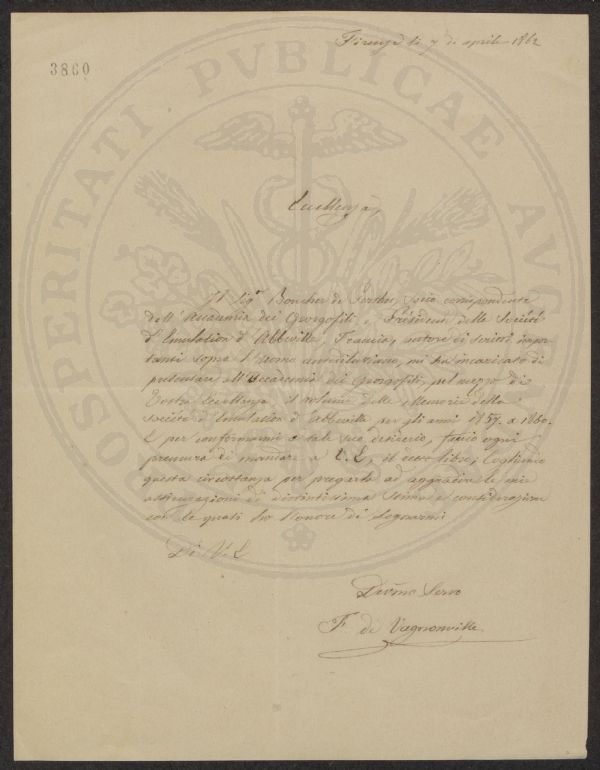 Firenze li 7 di aprile 1862
3860
PROSPERITATI PVBLICAE AVGENDAE
Eccellenza,
Il Sigr Boucher de Perthes, socio corrispondente
dell'Accademia dei Georgofili e Président della Société
d'Emulation d'Abbeville, Francia, autore di scritti impor-
tanti sopra l'uomo antidiluviano, mi ha incaricato di
presentare all'Accademia dei Georgofili, pel mezzo di
Vostra Eccellenza, il volume delle Memorie della
société d'Emulation d'Abbeville per gli anni 1857. a 1860.
E per conformarmi a tale suo desiderio, faccio ogni
premura di mandare a V. E, il detto libro; Coglierò
questa circostanza per pregarla ad aggradire le mie
assicurazioni di distintissima stima e considerazione
con le quali ho l'onore di segnarmi
Di V. E
Devmo Servo
F. de